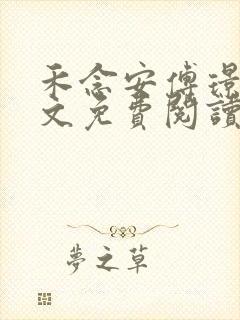 禾念安傅璟
文免費閱讀
夢之草